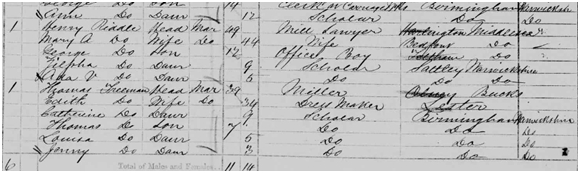 George Do Son Clerk Birmingham Warwickshire
Ann Do Daur 12 Scholar Do Do
1 Henry Riddle Head Mar 49 Mill Sawyer Middlesex
Mary A Do Wife Do 44 Wife Bedfont Do
George Do Son 12 Office Boy Feltham Do
Zilpha Do Daur 9 Scholar Saltley Warwickshire
Ada V Do Daur 6 Do Do
1 Thomas Freeman Head Mar 39 Miller Olney Bucks
Edith Do Wife Do 34 Dress Maker Lester
Catherine Do Daur 9 Scholar Birmingham Warwickshire
Thomas Do Son 7 Do Do Do
Louisa Do Daur 5 Do Do Do
Jenny Do Daur 3 Do Do Do
6 Total of Males and Females 11 14